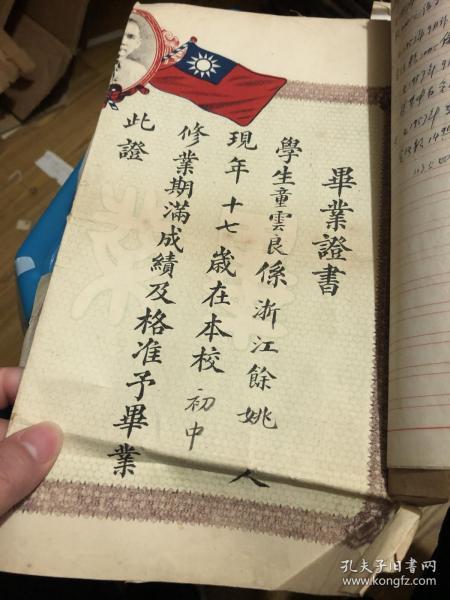 畢業證書
學生童雲良係浙江餘姚人
現年十七歲在本校初中
修業期滿成績及格准予畢業
此證
孔夫子旧书网
www.kongfz.com